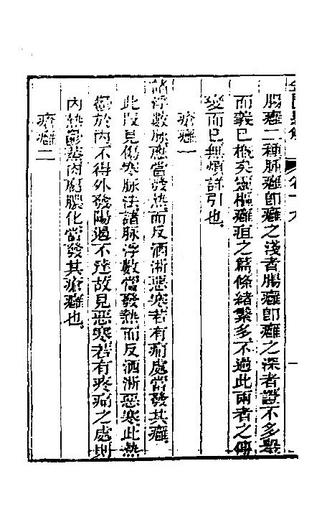 腸癰二種肺癰即癰之淺者腸癰即癰之深者證不多見
而義已概矣靈樞癰疽之篇條緒繁多不過此兩者之傳
變而已無煩詳引也
瘡癰一
諸浮數脈應當發熱而反洒淅惡寒若有痛處當發其癰
此段見傷寒脈法諸脈浮數當發熱而反洒淅惡寒此熱
鬱於內不得外發陽遏不達故見惡寒若有疼痛之處則
內熱鬱蒸肉腐膿化當發其瘡癰也
瘡癰二